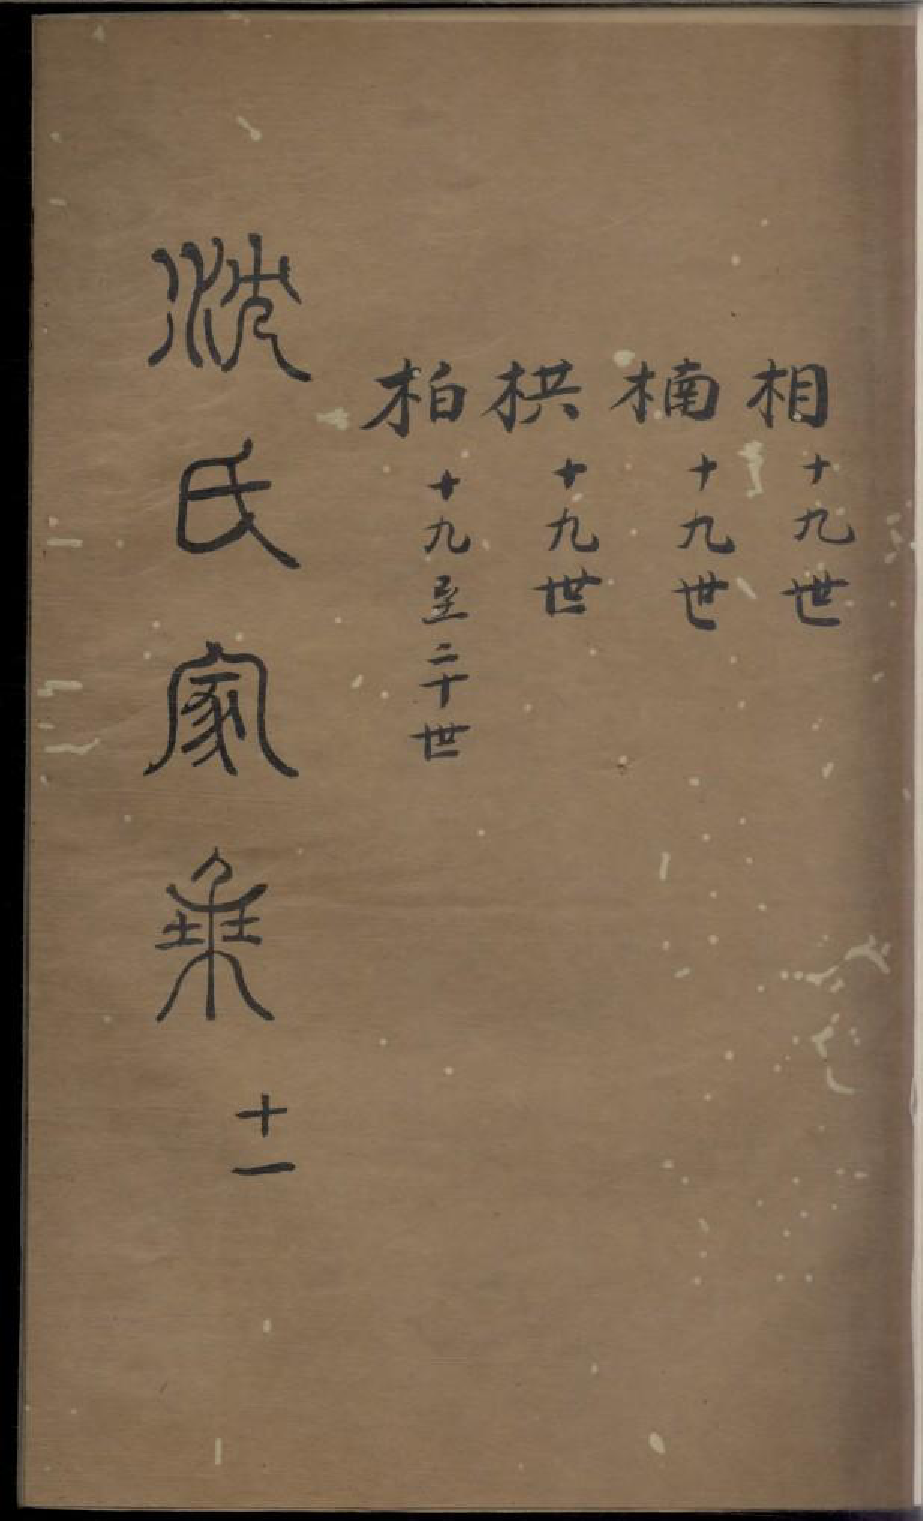 相 十九世
楠 十九世
栱 十九世
柏 十九至二十世
沈氏家乘 十一